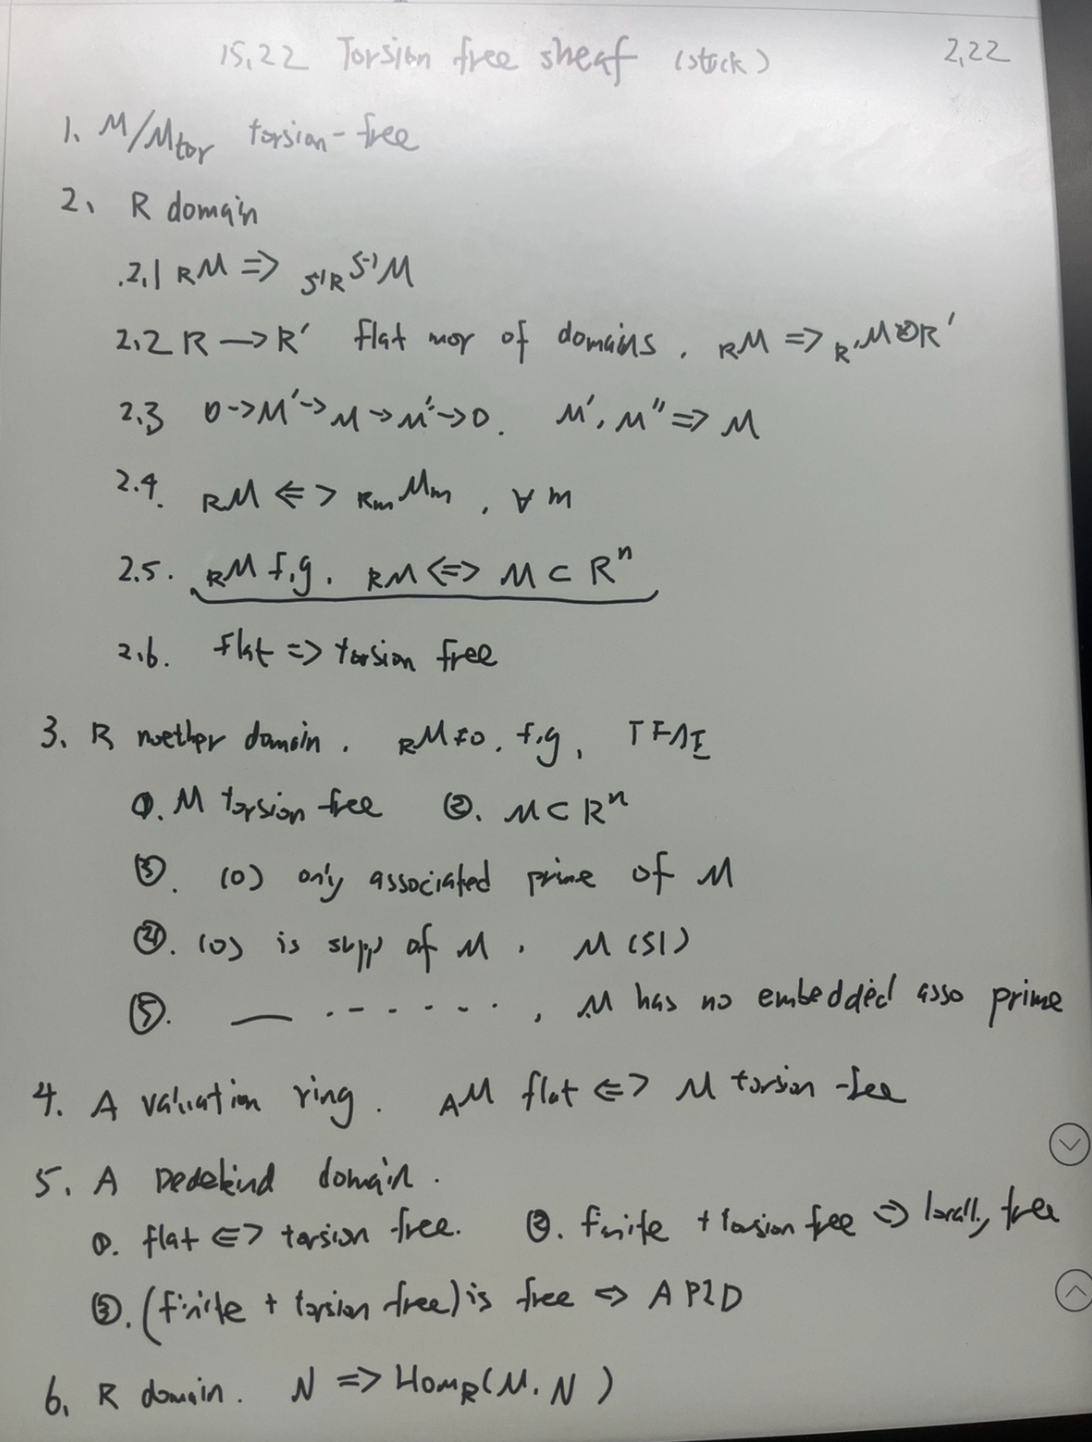 15,22 Torsion free sheaf (stack) 2,22
1. M/Mtor torsion-free
2、 R domain
2.1 RM => S⁻¹R S⁻¹M
2.2 R —> R' flat mor of domains. RM => R'M⊗R'
2.3 0->M'->M->M''->0. M', M'' => M
2.4. RM <=> Rm Mm , ∀ m
2.5. RM f.g. RM <=> M ⊂ Rⁿ
2.6. flat => torsion free
3. R noether domain. RM≠0. f.g, TFAE
①. M torsion free ②. M ⊂ Rⁿ
③. (0) only associated prime of M
④. (0) is supp of M. M (S1)
⑤. — . - - - - - . , M has no embedded asso prime
4. A valuation ring. AM flat <=> M torsion-free
5. A Dedekind domain.
①. flat <=> torsion free. ②. finite + torsion free => locally free
③. (finite + torsion free) is free => A PID
6, R domain. N => HomR(M, N)